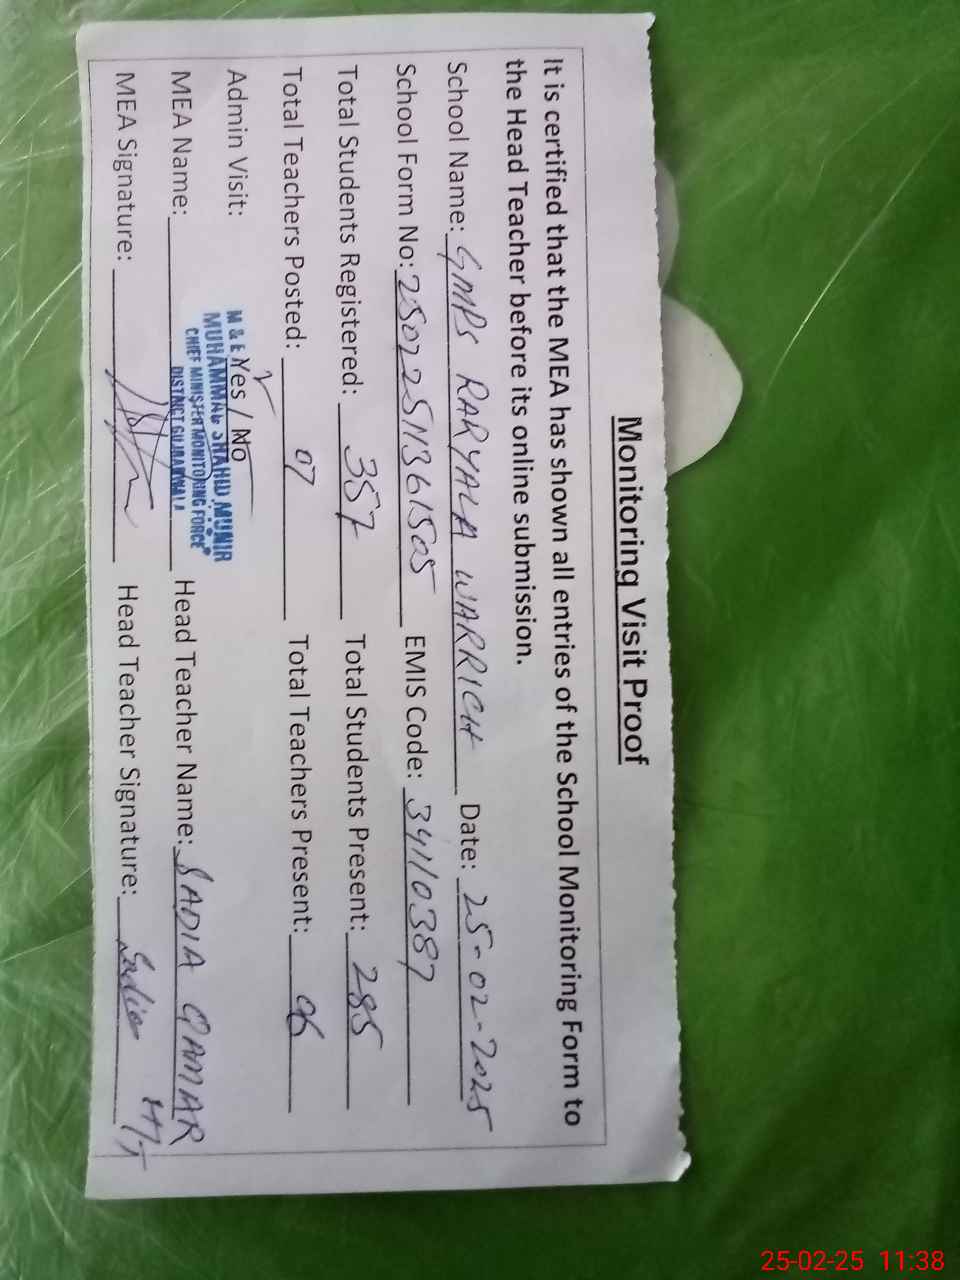 Monitoring Visit Proof
It is certified that the MEA has shown all entries of the School Monitoring Form to
the Head Teacher before its online submission.
School Name: GMPS RARYALA WARRICH Date: 25-02-2025
School Form No: 25022511361505 EMIS Code: 34110387
Total Students Registered: 357 Total Students Present: 285
Total Teachers Posted: 07 Total Teachers Present: 06
Admin Visit: Yes / No
M & E
MUHAMMAD SHAHID MUNIR
CHIEF MINISTER MONITORING FORCE
DISTRICT GUJRANWALA
MEA Name: Head Teacher Name: SADIA QAMAR
MEA Signature: Head Teacher Signature: Sadia H/T
25-02-25 11:38